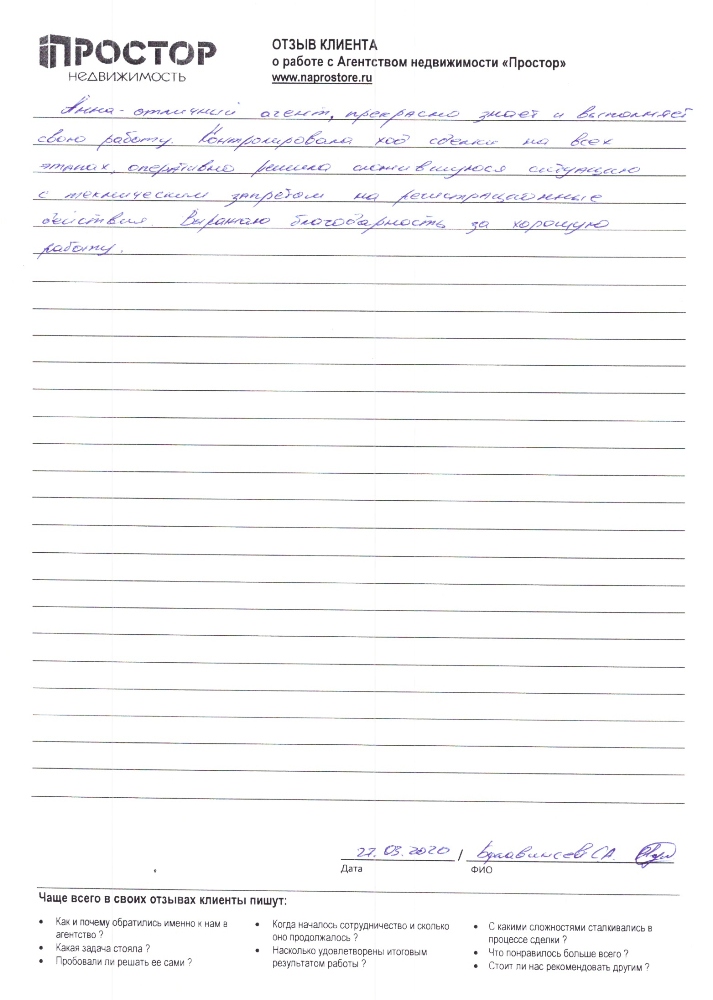 ПРОСТОР
НЕДВИЖИМОСТЬ
ОТЗЫВ КЛИЕНТА
о работе с Агентством недвижимости «Простор»
www.naprostore.ru
Анна - отличный агент, прекрасно знает и выполняет
свою работу. Контролировала ход сделки на всех
этапах, оперативно решила сложившуюся ситуацию
с техническим запретом на регистрационные
действия. Выражаю благодарность за хорошую
работу.
27.03.2020 /
Дата
ФИО
Чаще всего в своих отзывах клиенты пишут:
• Как и почему обратились именно к нам в
агентство ?
• Какая задача стояла ?
• Пробовали ли решать ее сами ?
• Когда началось сотрудничество и сколько
оно продолжалось ?
• Насколько удовлетворены итоговым
результатом работы ?
• С какими сложностями сталкивались в
процессе сделки ?
• Что понравилось больше всего ?
• Стоит ли нас рекомендовать другим ?